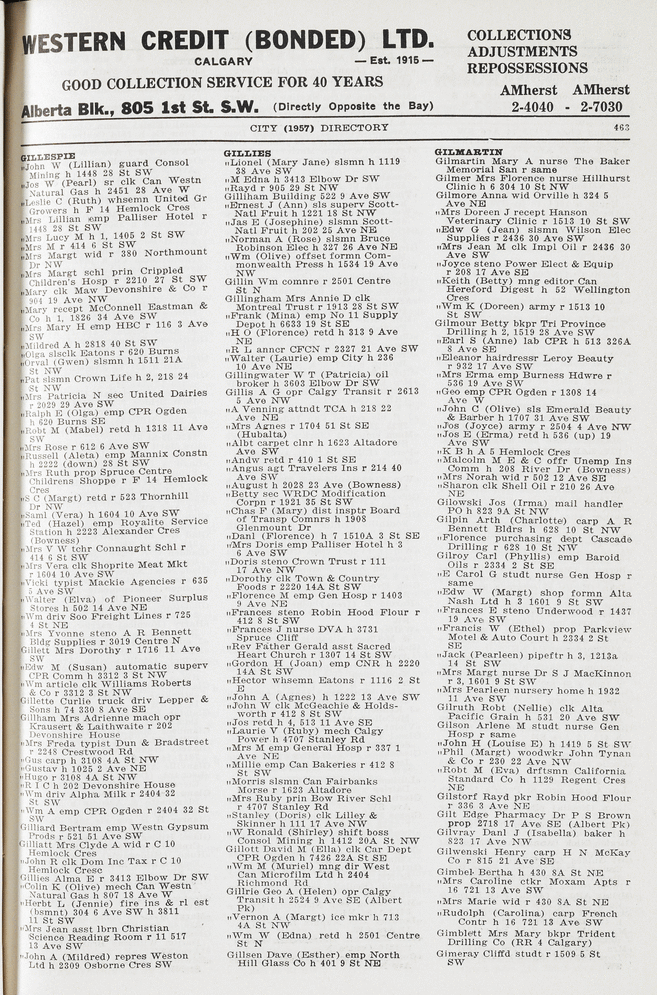 WESTERN CREDIT (BONDED) LTD.
CALGARY — Est. 1915 —
GOOD COLLECTION SERVICE FOR 40 YEARS
Alberta Blk., 805 1st St. S.W. (Directly Opposite the Bay)
COLLECTIONS
ADJUSTMENTS
REPOSSESSIONS
AMherst AMherst
2-4040 - 2-7030
CITY (1957) DIRECTORY 463
GILLESPIE
„John W (Lillian) guard Consol
Mining h 1448 28 St SW
„Jos W (Pearl) sr clk Can Westn
Natural Gas h 2451 28 Ave W
„Leslie C (Ruth) whsemn United Gr
Growers h F 14 Hemlock Cres
„Mrs Lillian emp Palliser Hotel r
1448 28 St SW
„Mrs Lucy M h 1, 1405 2 St SW
„Mrs M r 414 6 St SW
„Mrs Margt wid r 380 Northmount
Dr NW
„Mrs Margt schl prin Crippled
Children's Hosp r 2210 27 St SW
„Mary clk Maw Devonshire & Co r
904 19 Ave NW
„Mary recept McConnell Eastman &
Co h 1, 1826 34 Ave SW
„Mrs Mary H emp HBC r 116 3 Ave
SW
„Mildred A h 2818 40 St SW
„Olga slsclk Eatons r 620 Burns
„Orval (Gwen) slsmn h 1511 21A
St NW
„Pat slsmn Crown Life h 2, 218 24
St NW
„Mrs Patricia N sec United Dairies
r 2029 29 Ave SW
„Ralph E (Olga) emp CPR Ogden
h 620 Burns SE
„Robt M (Mabel) retd h 1318 11 Ave
SW
„Mrs Rose r 612 6 Ave SW
„Russell (Aleta) emp Mannix Constn
h 2222 (down) 28 St SW
„Mrs Ruth prop Spruce Centre
Childrens Shoppe r F 14 Hemlock
Cres
„S C (Margt) retd r 523 Thornhill
Dr NW
„Saml (Vera) h 1604 10 Ave SW
„Ted (Hazel) emp Royalite Service
Station h 2223 Alexander Cres
(Bowness)
„Mrs V W tchr Connaught Schl r
414 6 St SW
„Mrs Vera clk Shoprite Meat Mkt
r 1604 10 Ave SW
„Vicki typist Mackie Agencies r 635
5 Ave SW
„Walter (Elva) of Pioneer Surplus
Stores h 502 14 Ave NE
„Wm driv Soo Freight Lines r 725
4 St NE
„Mrs Yvonne steno A R Bennett
Bldg Supplies r 3019 Centre N
Gillett Mrs Dorothy r 1716 11 Ave
SW
„Edw M (Susan) automatic superv
CPR Comm h 3312 3 St NW
„Wm article clk Williams Roberts
& Co r 3312 3 St NW
Gillette Curlie truck driv Lepper &
Sons h 74 330 8 Ave SE
Gillham Mrs Adrienne mach opr
Krausert & Laithwaite r 202
Devonshire House
„Mrs Freda typist Dun & Bradstreet
r 2248 Crestwood Rd
„Gus carp h 3108 4A St NW
„Gustav h 1025 2 Ave NE
„Hugo r 3108 4A St NW
„R I C h 202 Devonshire House
„Wm driv Alpha Milk r 2404 32
St SW
„Wm A emp CPR Ogden r 2404 32 St
SW
Gilliard Bertram emp Westn Gypsum
Prods r 521 51 Ave SW
Gilliatt Mrs Clyde A wid r C 10
Hemlock Cres
„John R clk Dom Inc Tax r C 10
Hemlock Cresc
Gillies Alma E r 3413 Elbow Dr SW
„Colin K (Olive) mech Can Westn
Natural Gas h 807 18 Ave W
„Herbt L (Jennie) fire ins & rl est
(bsmnt) 304 6 Ave SW h 3811
11 St SW
„Mrs Jean asst lbrn Christian
Science Reading Room r 11 517
13 Ave SW
„John A (Mildred) repres Weston
Ltd h 2309 Osborne Cres SW
GILLIES
„Lionel (Mary Jane) slsmn h 1119
38 Ave SW
„M Edna h 3413 Elbow Dr SW
„Rayd r 905 29 St NW
Gilliham Building 522 9 Ave SW
„Ernest J (Ann) sls superv Scott-
Natl Fruit h 1221 18 St NW
„Jas E (Josephine) slsmn Scott-
Natl Fruit h 202 25 Ave NE
„Norman A (Rose) slsmn Bruce
Robinson Elec h 327 26 Ave NE
„Wm (Olive) offset formn Com-
monwealth Press h 1534 19 Ave
NW
Gillin Wm comnre r 2501 Centre
St N
Gillingham Mrs Annie D clk
Montreal Trust r 1913 28 St SW
„Frank (Mina) emp No 11 Supply
Depot h 6633 19 St SE
„H O (Florence) retd h 313 9 Ave
NE
„R L anncr CFCN r 2327 21 Ave SW
„Walter (Laurie) emp City h 236
10 Ave NE
Gillingwater W T (Patricia) oil
broker h 3603 Elbow Dr SW
Gillis A G opr Calgy Transit r 2613
5 Ave NW
„A Venning attndt TCA h 218 22
Ave NE
„Mrs Agnes r 1704 51 St SE
(Hubalta)
„Albt carpet clnr h 1623 Altadore
Ave SW
„Andw retd r 410 1 St SE
„Angus agt Travelers Ins r 214 40
Ave SW
„August h 2028 23 Ave (Bowness)
„Betty sec WRDC Modification
Corpn r 1921 35 St SW
„Chas F (Mary) dist insptr Board
of Transp Comnrs h 1908
Glenmount Dr
„Danl (Florence) h 7 1510A 3 St SE
„Mrs Doris emp Palliser Hotel h 3
6 Ave SW
„Doris steno Crown Trust r 111
17 Ave NW
„Dorothy clk Town & Country
Foods r 2220 14A St SW
„Florence M emp Gen Hosp r 1403
9 Ave NE
„Frances steno Robin Hood Flour r
412 8 St SW
„Frances J nurse DVA h 3731
Spruce Cliff
„Rev Father Gerald asst Sacred
Heart Church r 1307 14 St SW
„Gordon H (Joan) emp CNR h 2220
14A St SW
„Hector whsemn Eatons r 1116 2 St
E
„John A (Agnes) h 1222 13 Ave SW
„John W clk McGeachie & Holds-
worth r 412 8 St SW
„Jos retd h 4, 513 11 Ave SE
„Laurie V (Ruby) mech Calgy
Power h 4707 Stanley Rd
„Mrs M emp General Hosp r 337 1
Ave NE
„Millie emp Can Bakeries r 412 8
St SW
„Morris slsmn Can Fairbanks
Morse r 1623 Altadore
„Mrs Ruby prin Bow River Schl
r 4707 Stanley Rd
„Stanley (Doris) clk Lilley &
Skinner h 111 17 Ave NW
„W Ronald (Shirley) shift boss
Consol Mining h 1412 20A St NW
Gillott David M (Ella) clk Car Dept
CPR Ogden h 7426 22A St SE
„Wm M (Muriel) mng dir West
Can Microfilm Ltd h 2404
Richmond Rd
Gillrie Geo A (Helen) opr Calgy
Transit h 2524 9 Ave SE (Albert
Pk)
„Vernon A (Margt) ice mkr h 713
4A St NW
„Wm W (Edna) retd h 2501 Centre
St N
Gillsen Dave (Esther) emp North
Hill Glass Co h 401 9 St NE
GILMARTIN
Gilmartin Mary A nurse The Baker
Memorial San r same
Gilmer Mrs Florence nurse Hillhurst
Clinic h 6 304 10 St NW
Gilmore Anna wid Orville h 324 5
Ave NE
„Mrs Doreen J recept Hanson
Veterinary Clinic r 1513 10 St SW
„Edw G (Jean) slsmn Wilson Elec
Supplies r 2436 30 Ave SW
„Mrs Jean M clk Impl Oil r 2436 30
Ave SW
„Joyce steno Power Elect & Equip
r 208 17 Ave SE
„Keith (Betty) mng editor Can
Hereford Digest h 52 Wellington
Cres
„Wm K (Doreen) army r 1513 10
St SW
Gilmour Betty bkpr Tri Province
Drilling h 2, 1519 28 Ave SW
„Earl S (Anne) lab CPR h 513 326A
8 Ave SE
„Eleanor hairdressr Leroy Beauty
r 932 17 Ave SW
„Mrs Erma emp Burness Hdwre r
536 19 Ave SW
„Geo emp CPR Ogden r 1308 14
Ave W
„John C (Olive) sls Emerald Beauty
& Barber h 1707 31 Ave SW
„Jos (Joyce) army r 2504 4 Ave NW
„Jos E (Erma) retd h 536 (up) 19
Ave SW
„K B h A 5 Hemlock Cres
„Malcolm M E & C offr Unemp Ins
Comm h 208 River Dr (Bowness)
„Mrs Norah wid r 502 12 Ave SE
„Sharon clk Shell Oil r 210 26 Ave
NE
Gilowski Jos (Irma) mail handler
PO h 823 9A St NW
Gilpin Arth (Charlotte) carp A R
Bennett Bldrs h 628 10 St NW
„Florence purchasing dept Cascade
Drilling r 628 10 St NW
Gilroy Carl (Phyllis) emp Baroid
Oils r 2334 2 St SE
„E Carol G studt nurse Gen Hosp r
same
„Edw W (Margt) shop formn Alta
Nash Ltd h 3 1601 9 St SW
„Frances E steno Underwood r 1437
19 Ave SW
„Francis W (Ethel) prop Parkview
Motel & Auto Court h 2334 2 St
SE
„Jack (Pearleen) pipeftr h 3, 1213a
14 St SW
„Mrs Margt nurse Dr S J MacKinnon
r 3, 1601 9 St SW
„Mrs Pearleen nursery home h 1932
11 Ave SW
Gilruth Robt (Nellie) clk Alta
Pacific Grain h 531 20 Ave SW
Gilson Arlene M studt nurse Gen
Hosp r same
„John H (Louise E) h 1419 5 St SW
„Phil (Margt) woodwkr John Tynan
& Co r 230 22 Ave NW
„Robt M (Eva) drftsmn California
Standard Co h 1129 Regent Cres
NE
Gilstorf Rayd pkr Robin Hood Flour
r 336 3 Ave NE
Gilt Edge Pharmacy Dr P S Brown
prop 2718 17 Ave SE (Albert Pk)
Gilvray Danl J (Isabella) baker h
823 17 Ave NW
Gilwenski Henry carp H N McKay
Co r 815 21 Ave SE
Gimbel Bertha h 430 8A St NE
„Mrs Caroline ctkr Moxam Apts r
16 721 13 Ave SW
„Mrs Marie wid r 430 8A St NE
„Rudolph (Carolina) carp French
Contr h 16 721 13 Ave SW
Gimblett Mrs Mary bkpr Trident
Drilling Co (RR 4 Calgary)
Gimeray Cliffd studt r 1509 5 St
SW